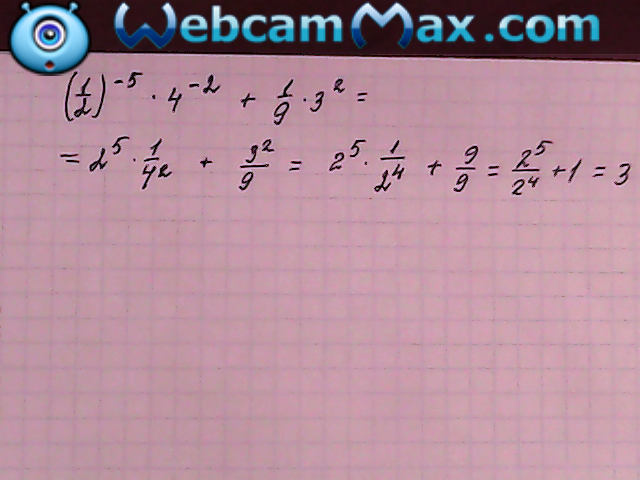 WebcamMax.com
(1/2)^-5 · 4^-2 + 1/9 · 3^2 =
= 2^5 · 1/4^2 + 3^2/9 = 2^5 · 1/2^4 + 9/9 = 2^5/2^4 + 1 = 3